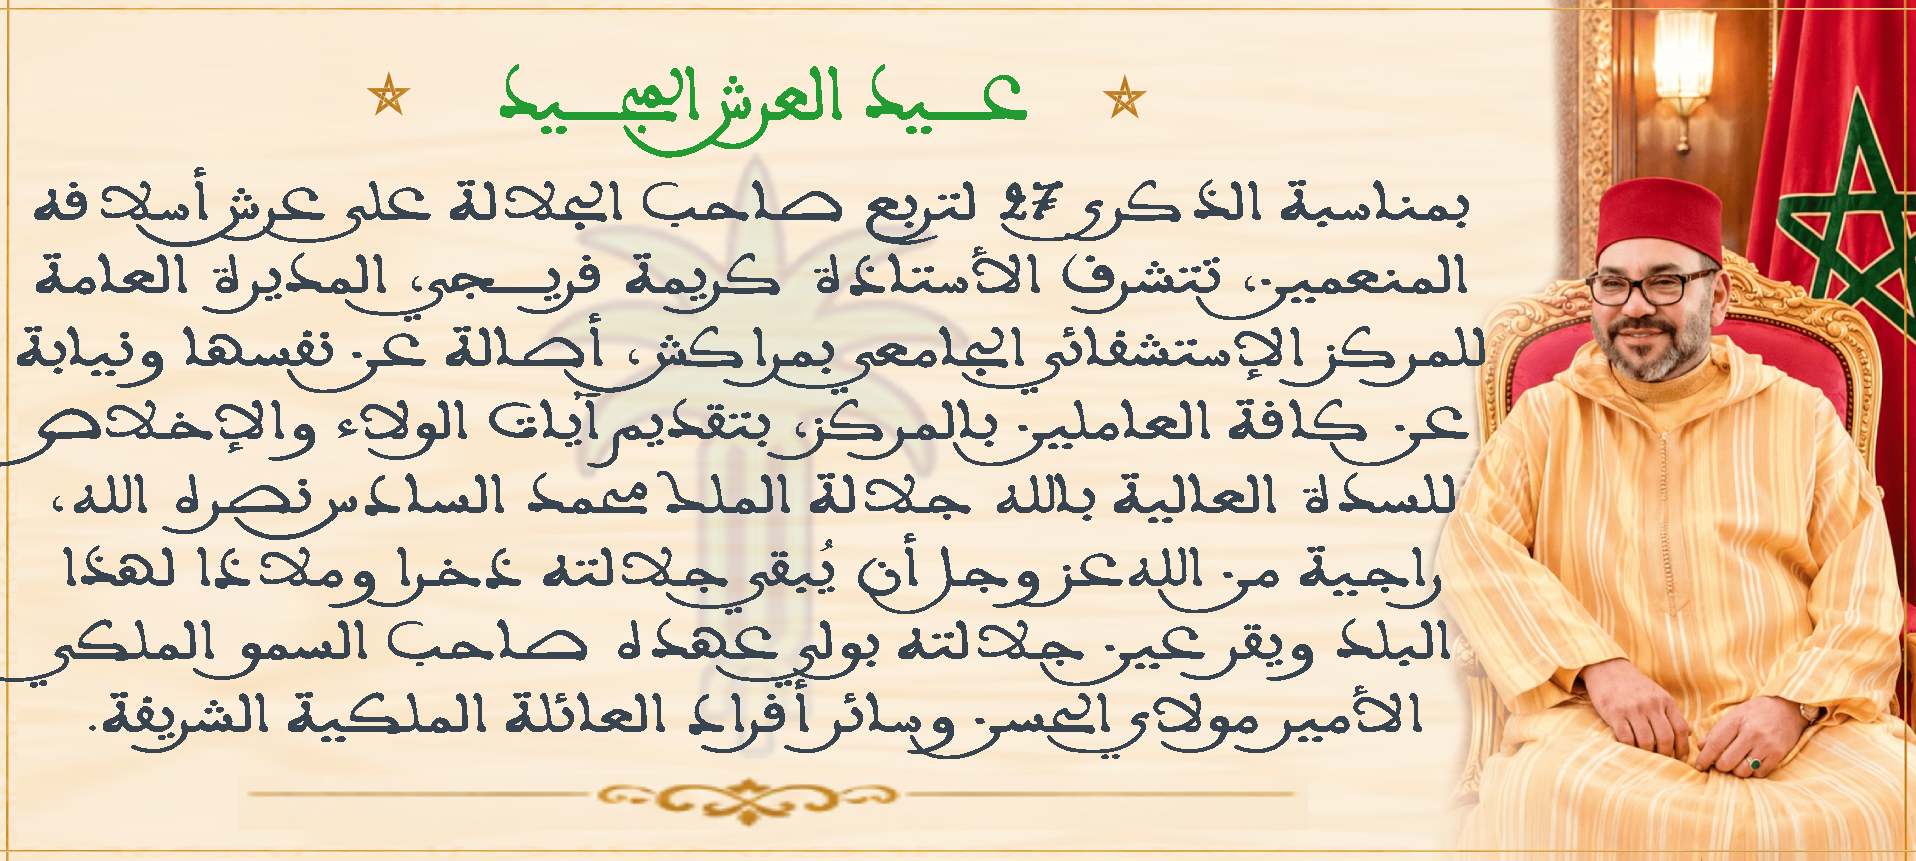 عيد العرش المجيد
بمناسبة الذكرى 27 لتربع صاحب الجلالة على عرش أسلافه
المنعمين، تتشرف الأستاذة كريمة فريجي، المديرة العامة
للمركز الإستشفائي الجامعي بمراكش، أصالة عن نفسها ونيابة
عن كافة العاملين بالمركز، بتقديم آيات الولاء والإخلاص
للسدة العالية بالله جلالة الملك محمد السادس نصره الله،
راجية من الله عز وجل أن يُبقي جلالته ذخرا وملاذا لهذا
البلد ويقر عين جلالته بولي عهده صاحب السمو الملكي
الأمير مولاي الحسن وسائر أفراد العائلة الملكية الشريفة.